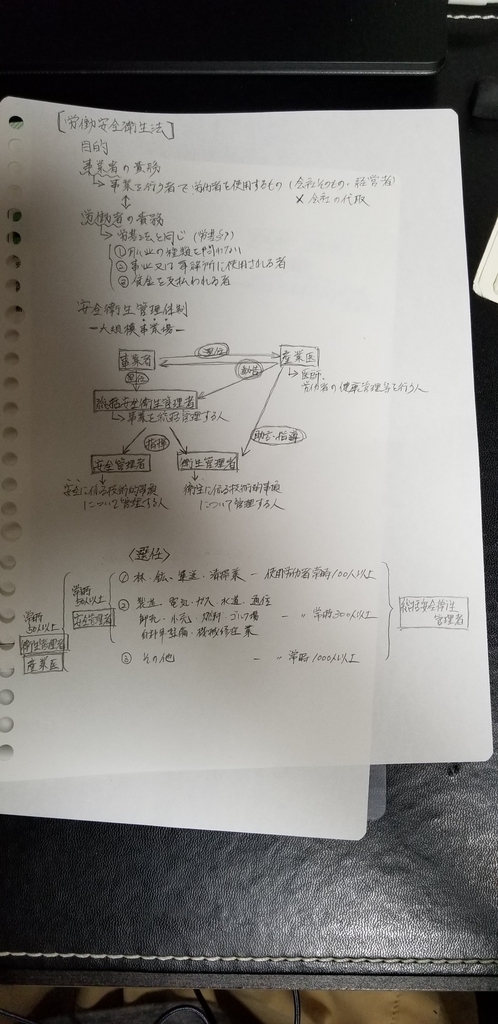 [労働安全衛生法]
目的
事業者の責務
→事業を行う者で労働者を使用するもの (会社そのもの・経営者)
× 会社の代取
↕
労働者の責務
→労基法と同じ (労基§9)
①職業の種類を問わない
②事業又は事務所に使用される者
③賃金を支払われる者
安全衛生管理体制
ー大規模事業場ー
事業者 選任 産業医
選任 勧告
→医師。
労働者の健康管理等を行う人
総括安全衛生管理者
→事業を統括管理する人
指揮 助言・指導
安全管理者 衛生管理者
安全に係る技術的事項
について管理する人
衛生に係る技術的事項
について管理する人
〈選任〉
①林・鉱・運送・清掃業 ー 使用労働者常時100人以上
②製造・電気・ガス・水道・通信
卸売・小売・燃料・ゴルフ場
自動車整備・機械修理業
ー 〃 常時300人以上
③その他 ー 〃 常時1000人以上
総括安全衛生
管理者
常時
50人以上
安全管理者
常時
50人以上
衛生管理者
産業医